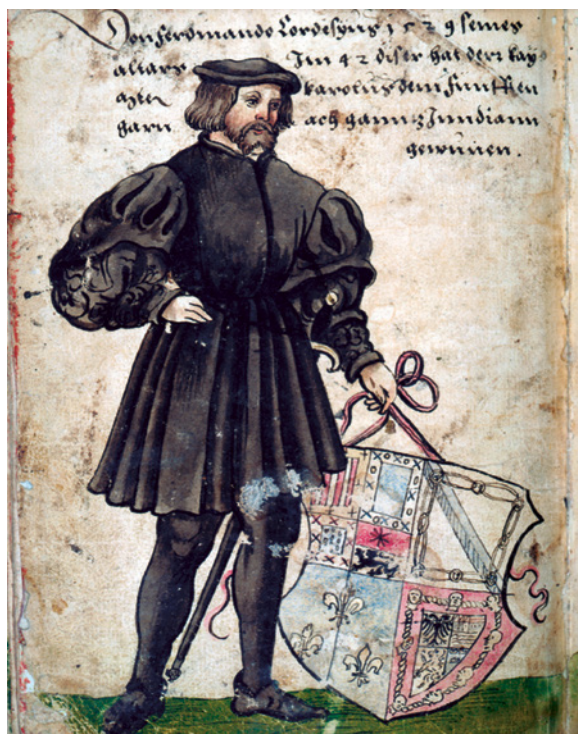 Don ferdinando Cordesyus 1529 seines
alters Im 42 diser hat derr kay
karolus dem funfften
gantz Inndiann
gewunen.